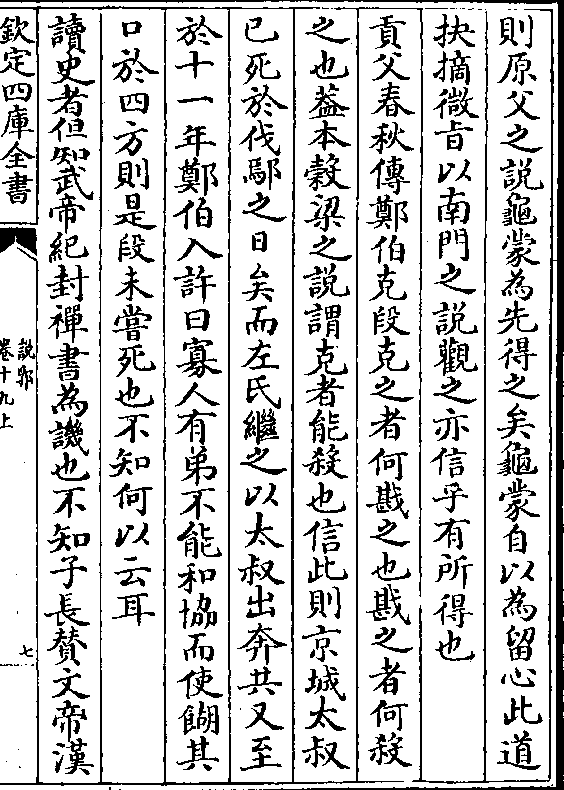 則原父之說龜蒙為先得之矣龜蒙自以為留心此道
抉摘微旨以南門之說觀之亦信乎有所得也
貢父春秋傳鄭伯克段克之者何戡之也戡之者何殺
之也葢本穀梁之說謂克者能殺也信此則京城太叔
已死於伐鄢之日矣而左氏繼之以太叔出奔共又至
於十一年鄭伯入許曰寡人有弟不能和協而使餬其
口於四方則是段未嘗死也不知何以云耳
讀史者但知武帝紀封禪書為譏也不知子長賛文帝漢
欽定四庫全書
說郛
卷十九上
七